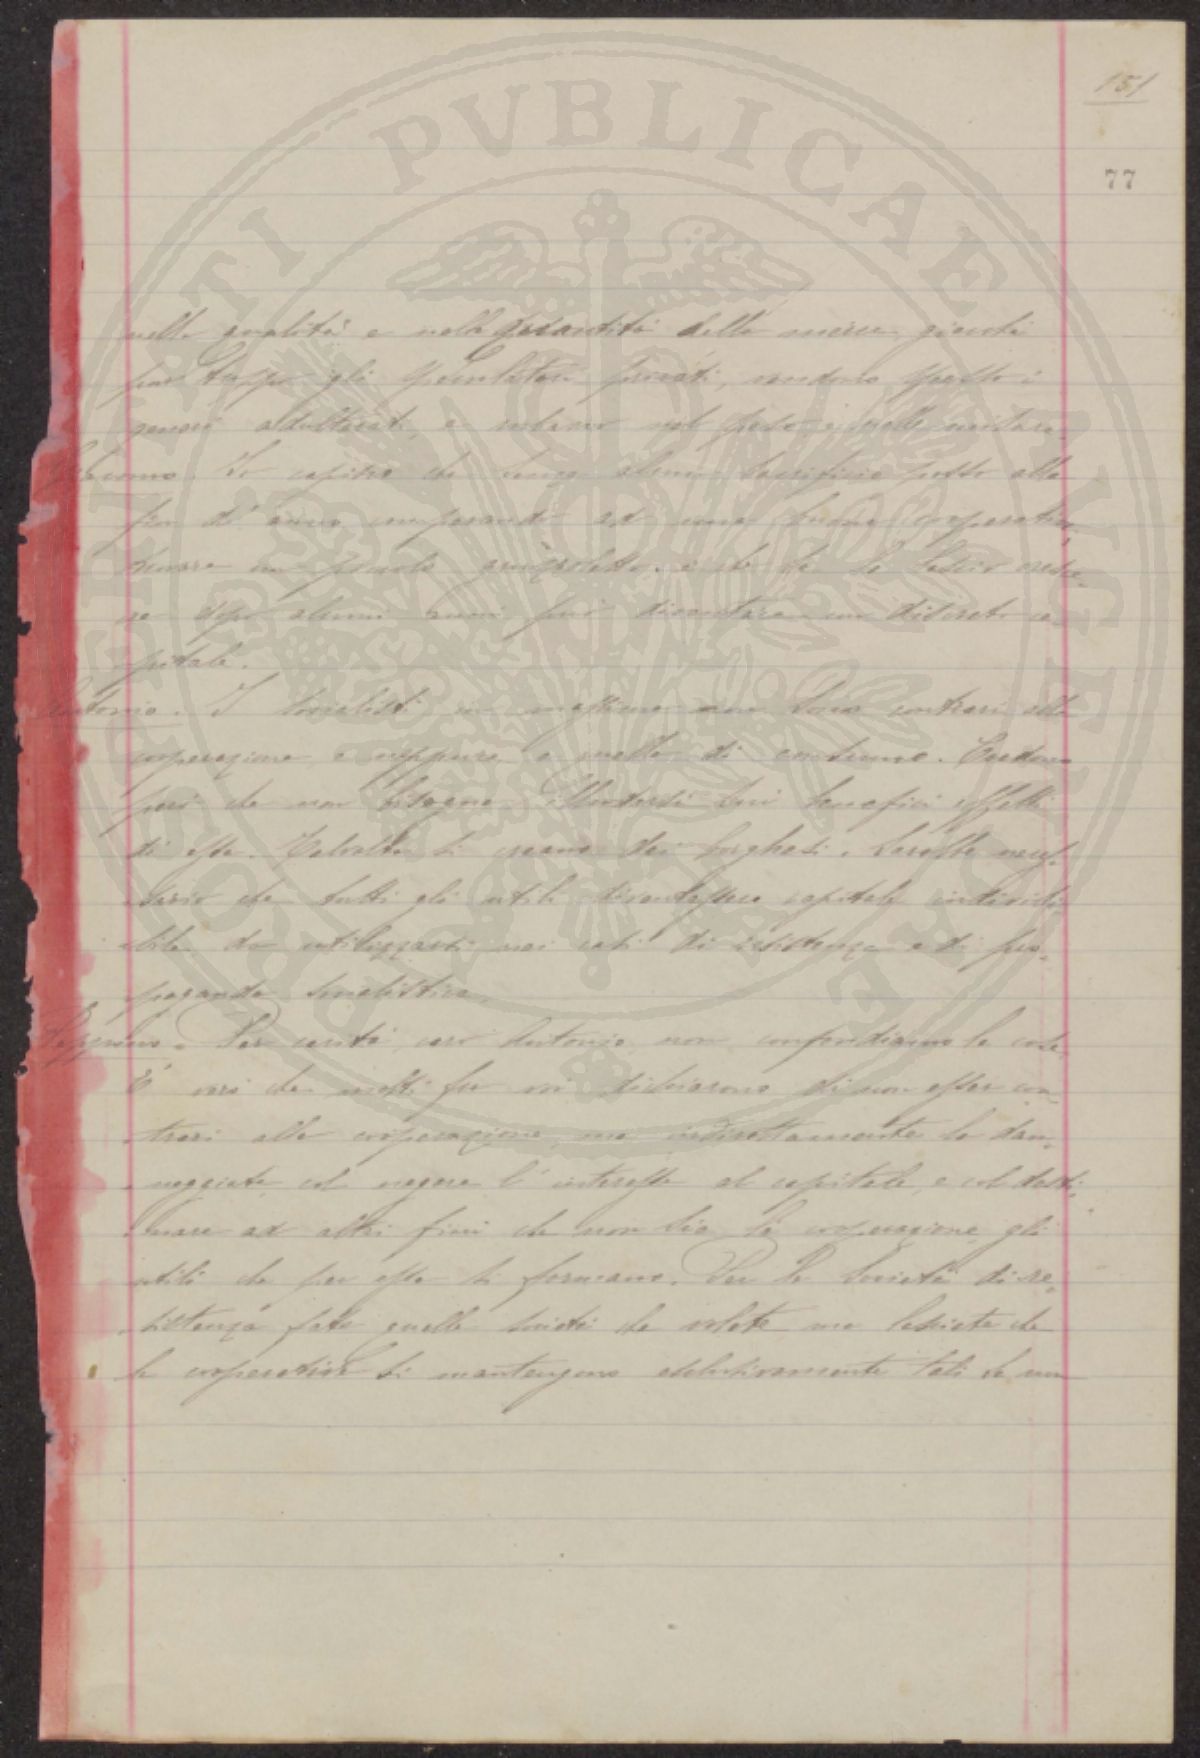 151
77
nella qualità e nella quantità della merce, giacchè
pur troppo gli speculatori privati, vendono spesso i
generi adulterati, e rubano nel peso e nelle misure.
Giacomo. Io capisco che senza alcun sacrificio posso alla
fin d'anno comperando ad una buona cooperativa,
avere un piccolo gruzzoletto, e che se lo lascio cresce-
re dopo alcuni anni può diventare un discreto ca-
pitale.
Antonio. I socialisti in massima non sono contrari alla
cooperazione e neppure a quella di consumo. Credono
però che non bisogna illudersi sui benefici effetti
di essa. Talvolta si creano dei borghesi. Sarebbe neces-
sario che tutti gli utili diventassero capitale indivisi-
bile da utilizzarsi nei casi di resistenza e di pro-
paganda socialistica.
Per carità, caro Antonio, non confondiamo le cose.
È vero che molti fra voi dichiarano di non esser con-
trari alla cooperazione, ma indirettamente la dan-
neggiate col negare l'interesse al capitale, e col desti-
nare ad altri fini che non sia la cooperazione, gli
utili che per essa si formano. Per le Società di re-
sistenza fate quelle società che volete ma lasciate che
le cooperative si mantengano esclusivamente tali se non
PVBLICAE